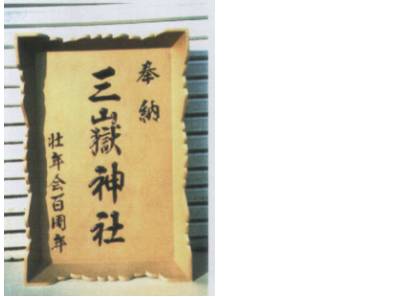 奉納
三山嶽神社
壮年会百周年